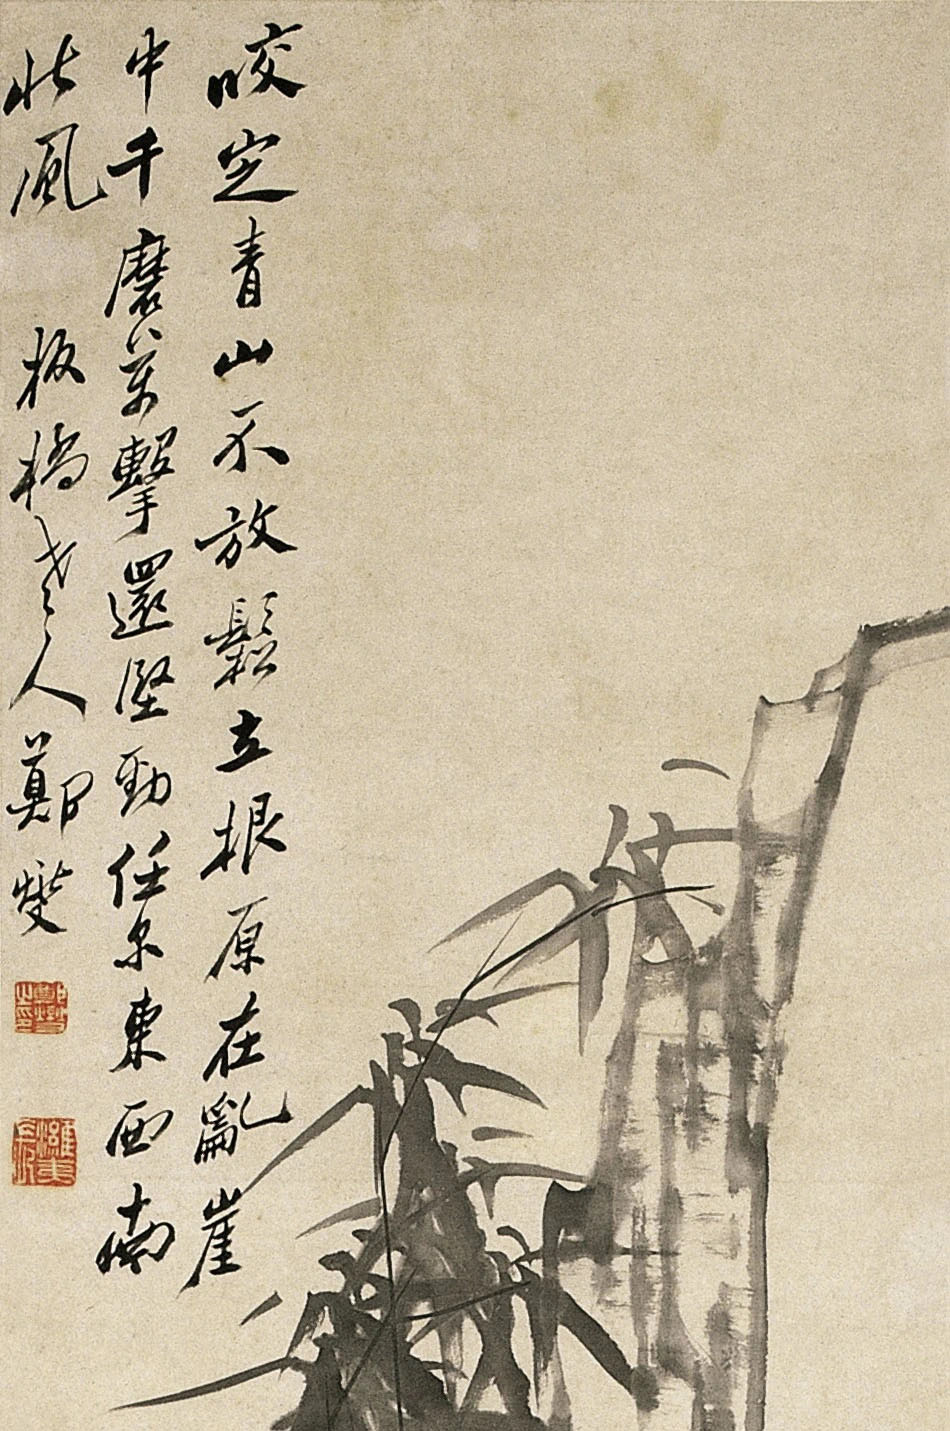 咬定青山不放鬆立根原在亂崖
中千磨萬擊還堅勁任尔東西南
北風
板橋老人鄭燮